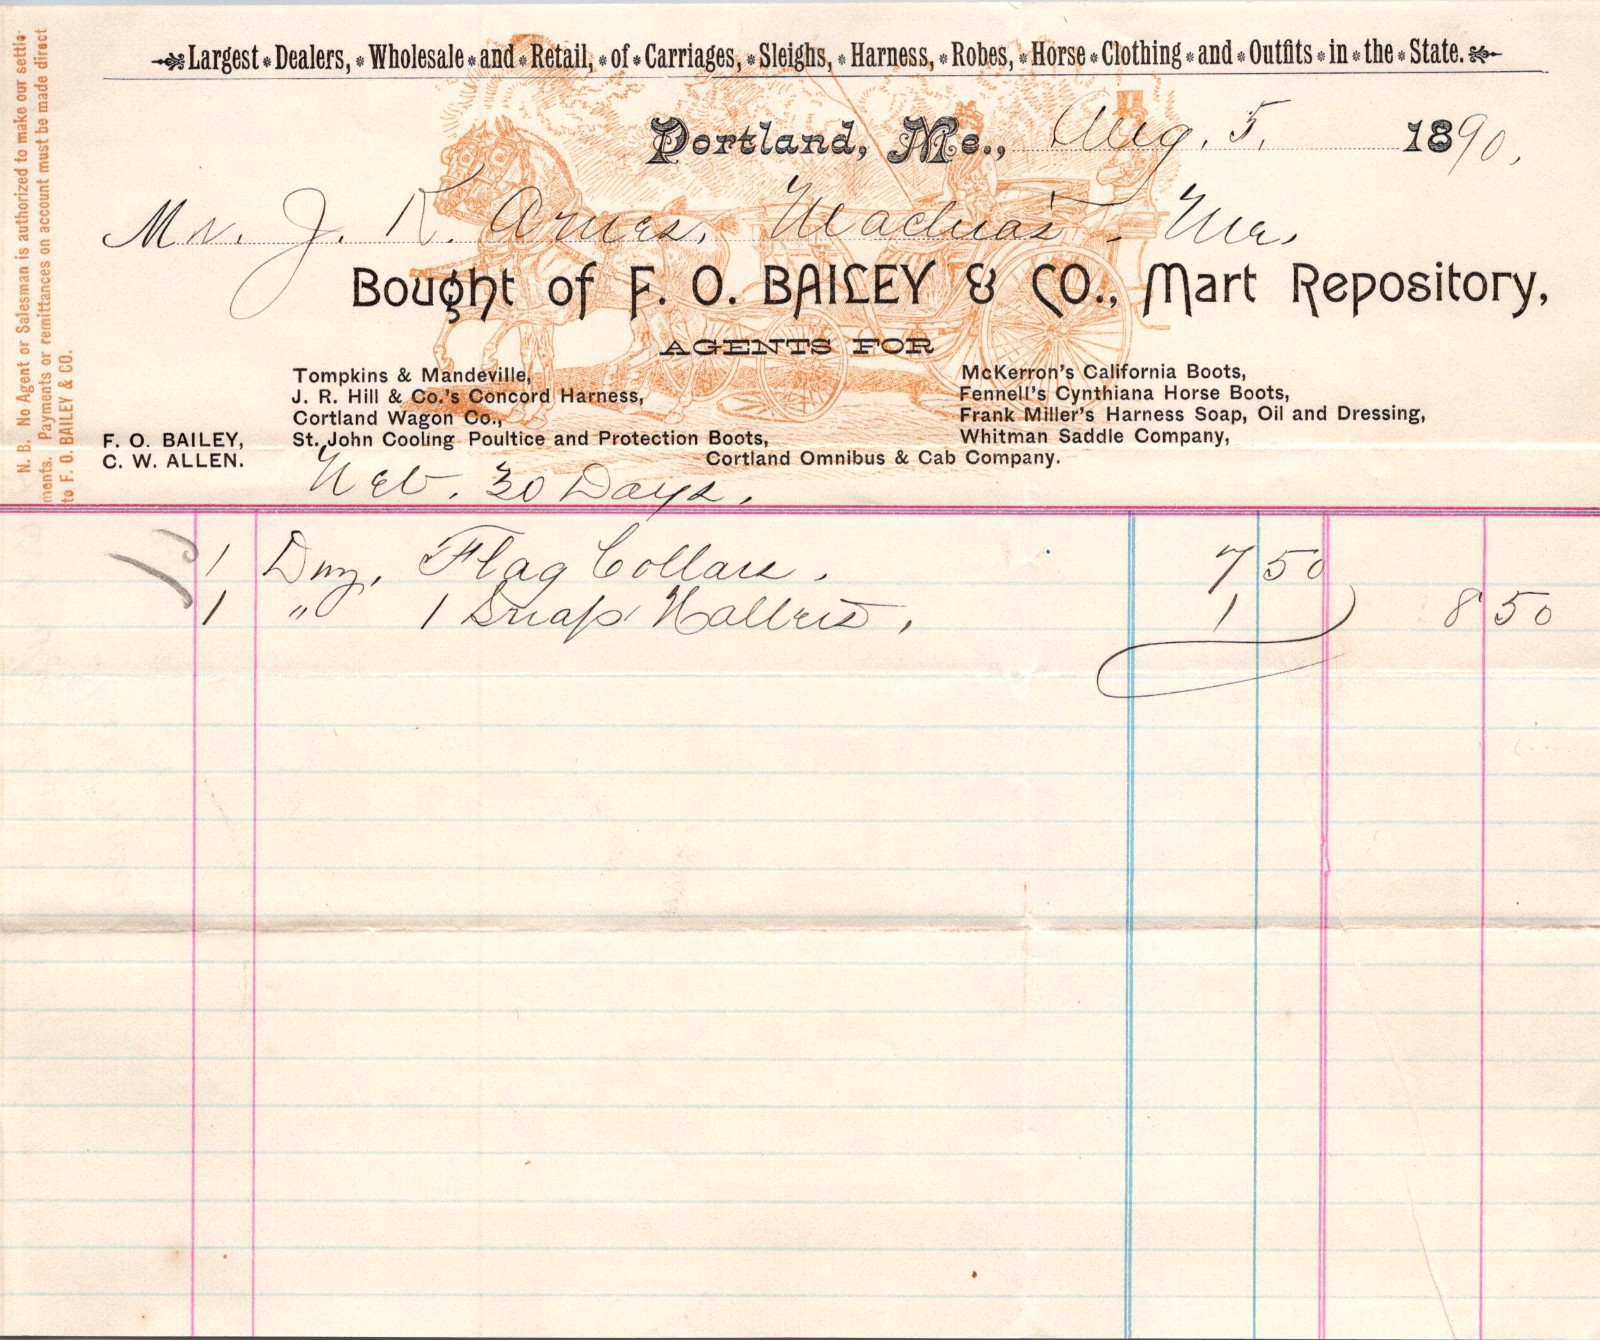 Largest Dealers, Wholesale and Retail, of Carriages, Sleighs, Harness, Robes, Horse Clothing and Outfits in the State.
Portland, Me., Aug. 5. 1890.
Mr. J. K. Ames, Machias. Me.
Bought of F. O. BAILEY & CO., Mart Repository,
AGENTS FOR
Tompkins & Mandeville,
J. R. Hill & Co.'s Concord Harness,
Cortland Wagon Co.,
St. John Cooling Poultice and Protection Boots,
McKerron's California Boots,
Fennell's Cynthiana Horse Boots,
Frank Miller's Harness Soap, Oil and Dressing,
Whitman Saddle Company,
Cortland Omnibus & Cab Company.
F. O. BAILEY,
C. W. ALLEN.
N. B. No Agent or Salesman is authorized to make our settle-
ments. Payments or remittances on account must be made direct
to F. O. BAILEY & CO.
Net. 30 Days.
1 Doz. Flag Collars. 7 50
1 " 1 Snap Halters, 1 8 50